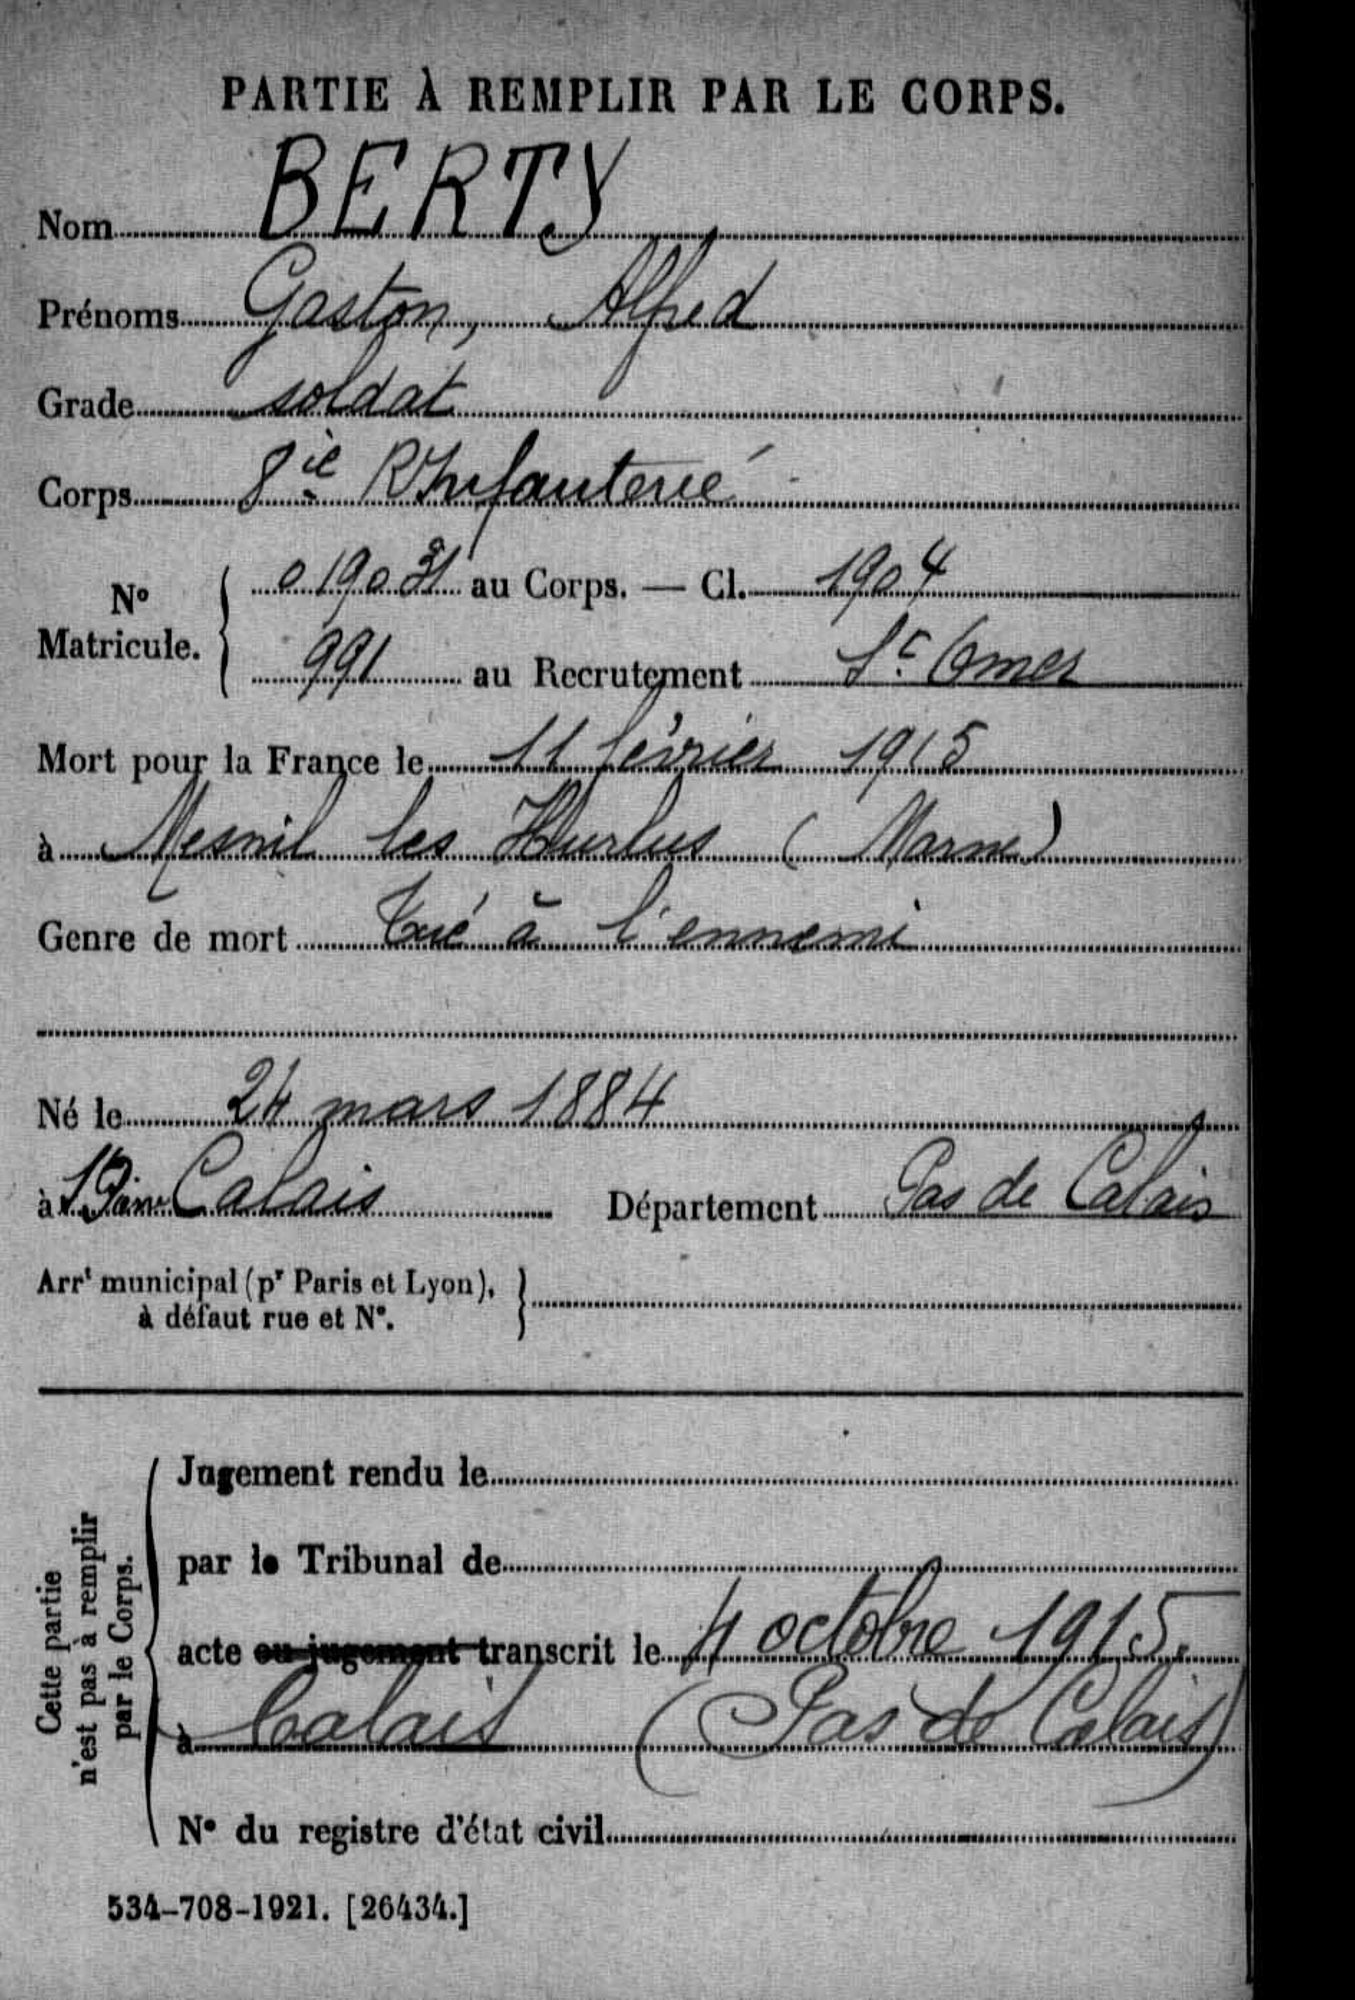 PARTIE À REMPLIR PAR LE CORPS.
Nom BERTY
Prénoms Gaston, Alfred
Grade soldat
Corps 8ie R Infanterie
No Matricule. { 019031 au Corps. — Cl. 1904
991 au Recrutement St. Omer
Mort pour la France le 11 février 1915
à Mesnil les Hurlus (Marne)
Genre de mort Tué à l'ennemi
Né le 24 mars 1884
à Calais Département Pas de Calais
Arrt municipal (pr Paris et Lyon), à défaut rue et No. }
Cette partie n'est pas à remplir par le Corps.
Jugement rendu le
par le Tribunal de
acte ou jugement transcrit le 4 octobre 1915.
à Calais (Pas de Calais)
No du registre d'état civil
534-708-1921. [26434.]